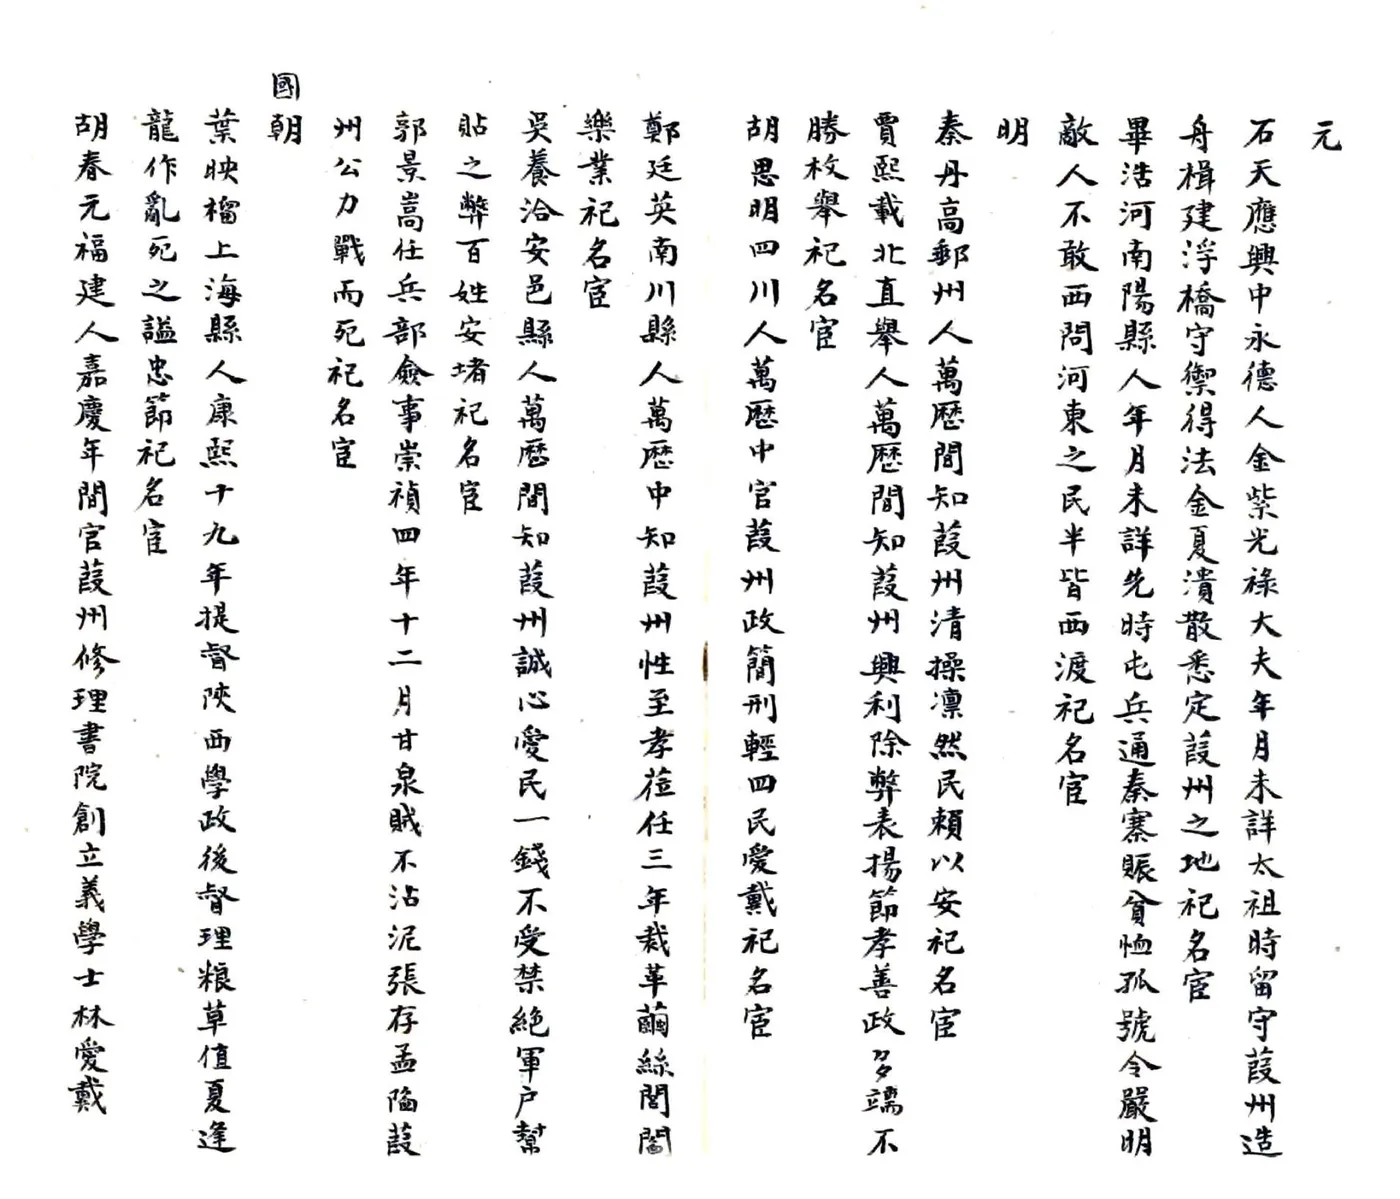 元
石天應興中永德人金紫光祿大夫年月未詳太祖時留守葭州造
舟楫建浮橋守禦得法金夏潰散悉定葭州之地祀名宦
畢浩河南陽縣人年月未詳先時屯兵通秦寨賑貧恤孤號令嚴明
敵人不敢西問河東之民半皆西渡祀名宦
明
秦丹高郵州人萬歷間知葭州清操凛然民賴以安祀名宦
賈熙載北直舉人萬歷間知葭州興利除弊表揚節孝善政多端不
勝枚舉祀名宦
胡思明四川人萬歷中官葭州政簡刑輕四民愛戴祀名宦
鄭廷英南川縣人萬歷中知葭州性至孝蒞任三年裁革繭絲閭閻
樂業祀名宦
吳養洽安邑縣人萬歷間知葭州誠心愛民一錢不受禁絕軍户幫
貼之弊百姓安堵祀名宦
郭景嵩任兵部僉事崇禎四年十二月甘泉賊不沾泥張存孟陷葭
州公力戰而死祀名宦
國朝
葉映榴上海縣人康熙十九年提督陝西學政後督理粮草值夏逢
龍作亂死之謚忠節祀名宦
胡春元福建人嘉慶年間官葭州修理書院創立義學士林愛戴